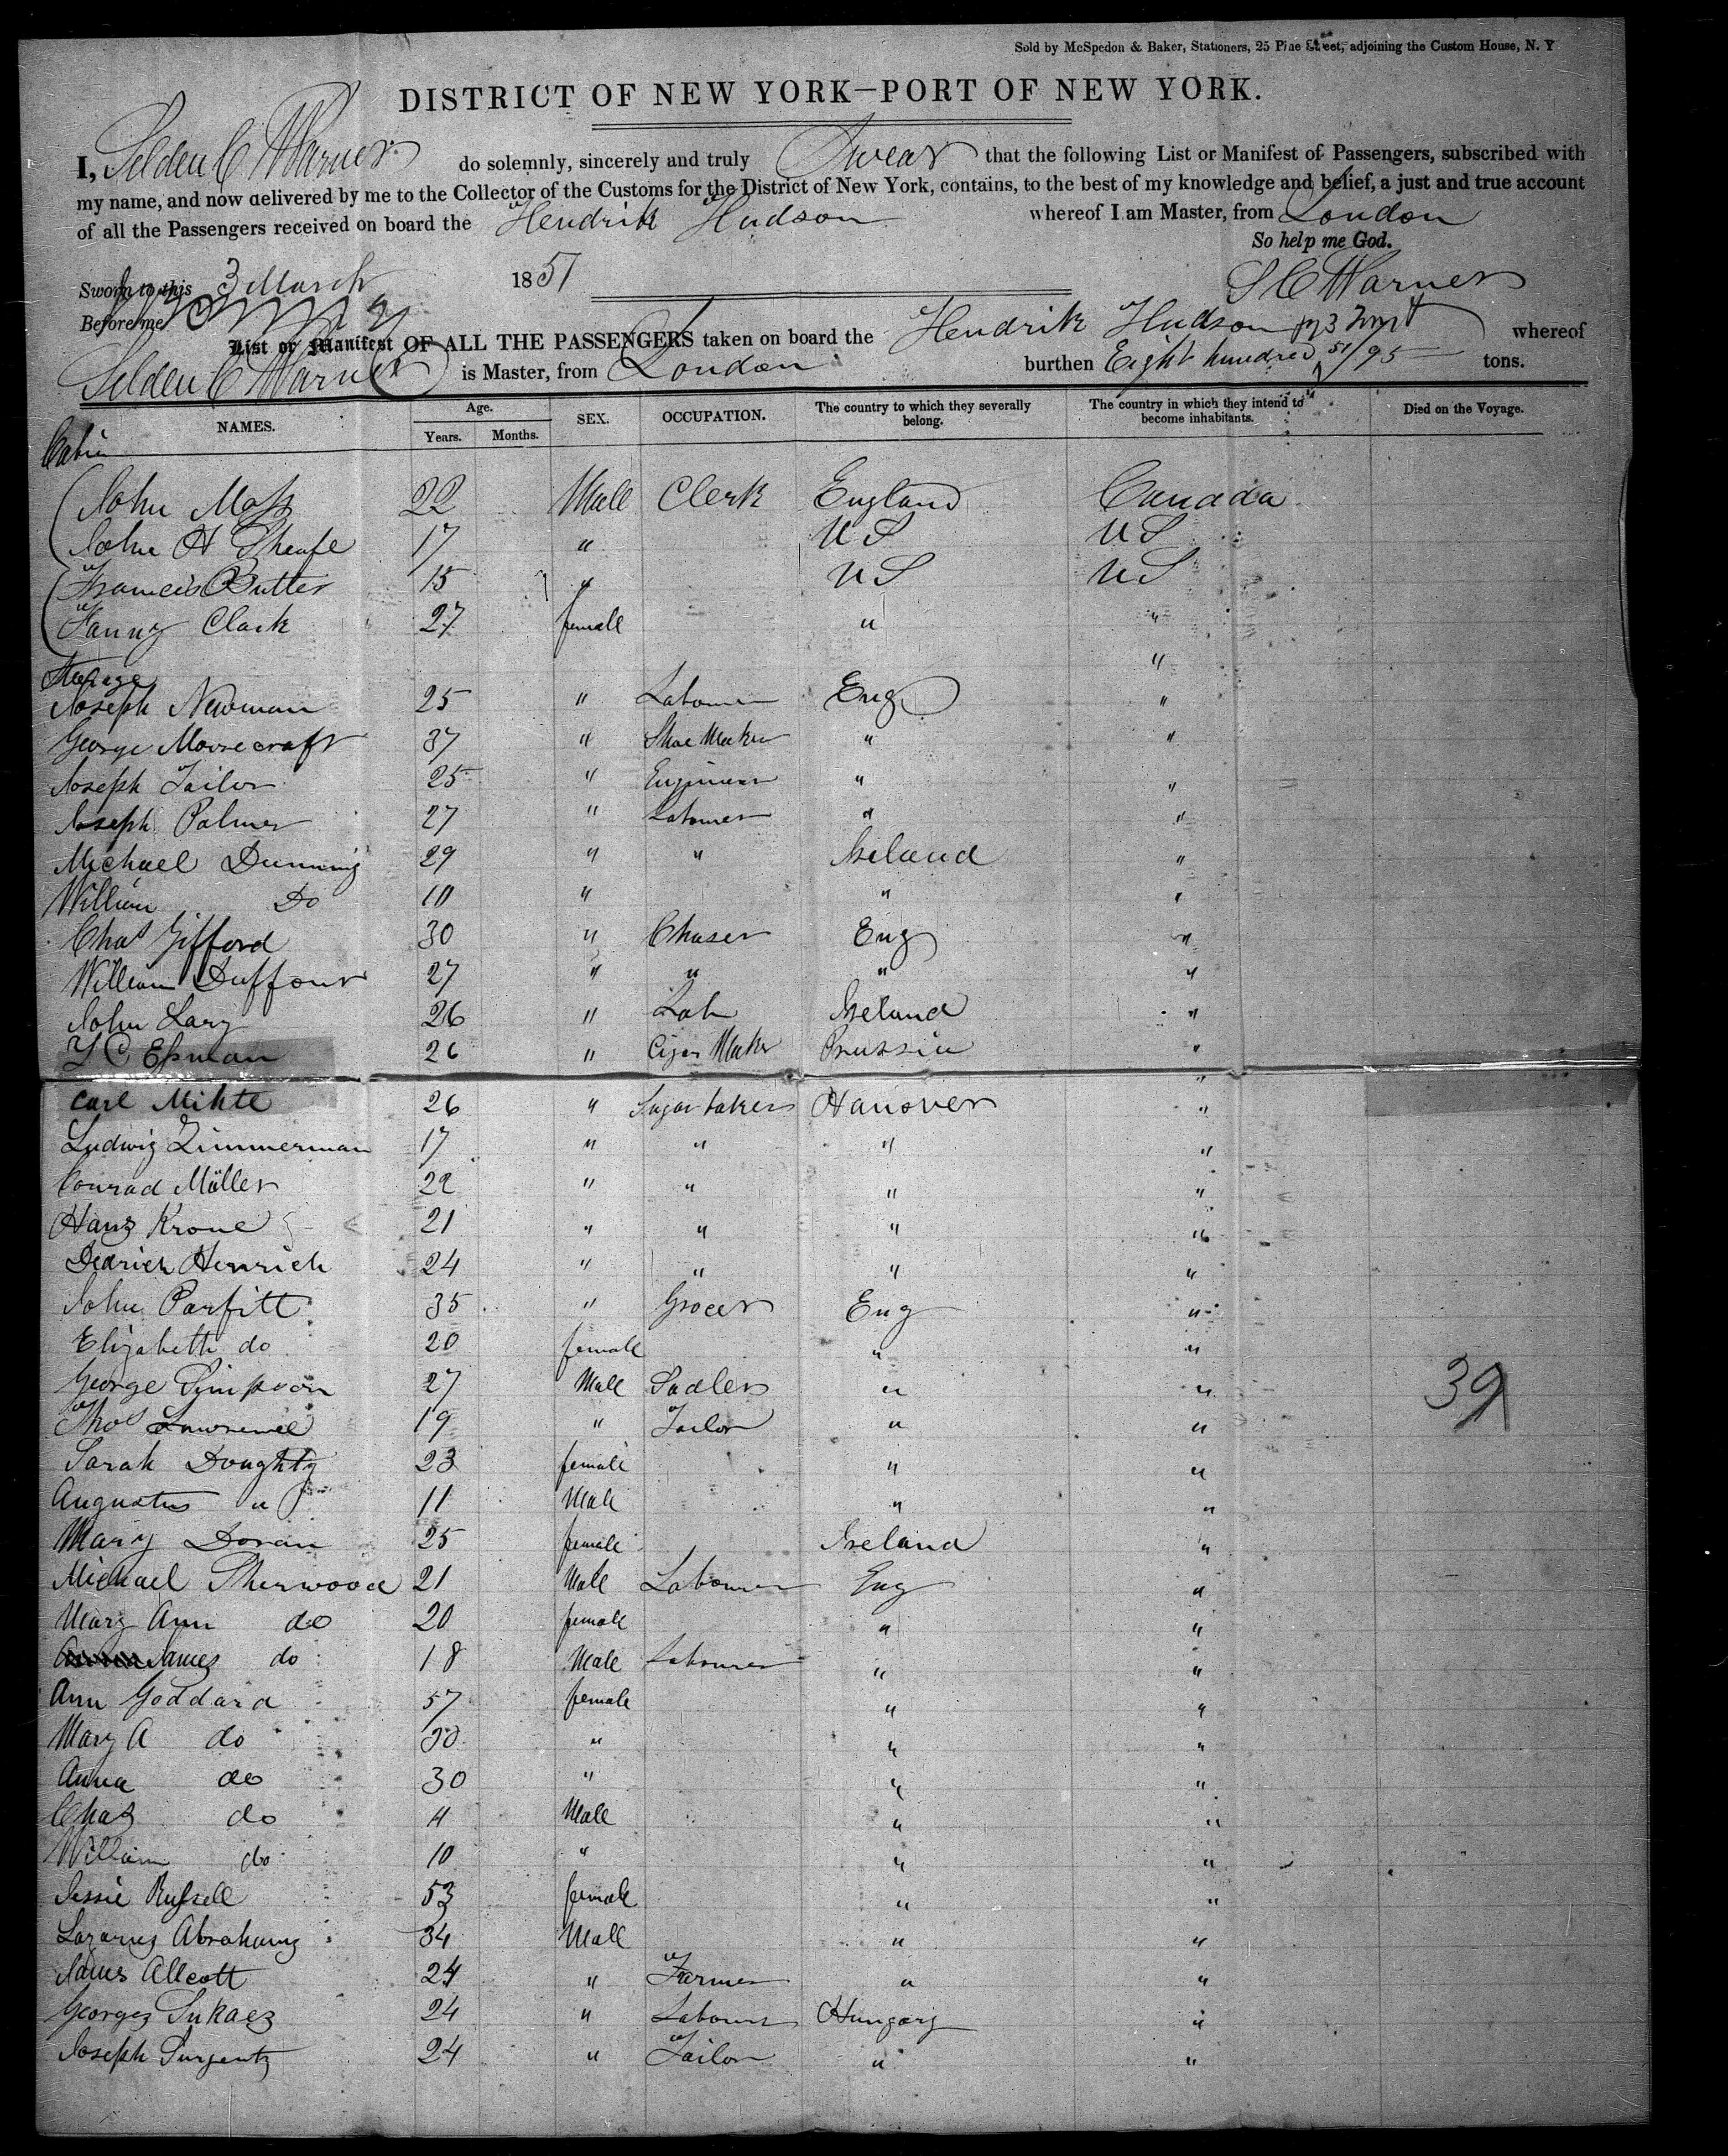 Sold by McSpedon & Baker, Stationers, 25 Pine Street, adjoining the Custom House, N. Y
DISTRICT OF NEW YORK—PORT OF NEW YORK.
I, Selden C Warner do solemnly, sincerely and truly Swear that the following List or Manifest of Passengers, subscribed with
my name, and now delivered by me to the Collector of the Customs for the District of New York, contains, to the best of my knowledge and belief, a just and true account
of all the Passengers received on board the Hendrik Hudson whereof I am Master, from London
So help me God.
Sworn to this 3 March 1851
S C Warner
Before me
List or Manifest OF ALL THE PASSENGERS taken on board the Hendrik Hudson whereof
Selden C Warner is Master, from London burthen Eight hundred 51/95 tons.
NAMES. Age. Years. Months. SEX. OCCUPATION. The country to which they severally belong. The country in which they intend to become inhabitants. Died on the Voyage.
Cabin
John Moss 22 Male Clerk England Canada
John H Sheafe 17 " U S U S
Francis Butter 15 " U S U S
Fanny Clark 27 female " "
Steerage "
Joseph Newman 25 " Labourer Eng "
George Moorecraft 37 " Shoe Maker " "
Joseph Tailor 25 " Engineer " "
Joseph Palmer 27 " Labourer " "
Michael Dunning 29 " " Ireland "
William Do 10 " " "
Chas Gifford 30 " Chaser Eng "
William Duffour 27 " " " "
John Lary 26 " Lab Ireland "
Y C Essman 26 " Cigar Maker Prussia "
"
Carl Mihte 26 " Sugar baker Hanover "
Ludwig Zimmerman 17 " " " "
Conrad Müller 22 " " " "
Hanz Krone 21 " " " "
Dedrich Henrich 24 " " " "
John Parfitt 35 " Grocer Eng "
Elizabeth do 20 female " "
George Simpson 27 Male Sadler " "
39
Thos Lawrence 19 " Tailor " "
Sarah Doughty 23 female " "
Augustus " 11 Male " "
Mary Doran 25 female Ireland "
Michael Sherwood 21 Male Labourer Eng "
Mary Ann do 20 female " "
James do 18 Male Labourer " "
Ann Goddard 57 female " "
Mary A do 30 " " "
Anna do 30 " " "
Chas do 4 Male " "
William do 10 " " "
Jessie Russell 53 female " "
Lazarus Abrahams 34 Male " "
James Allcott 24 " Farmer " "
Georgez Lukaez 24 " Labourer Hungary "
Joseph Surgentz 24 " Tailor " "